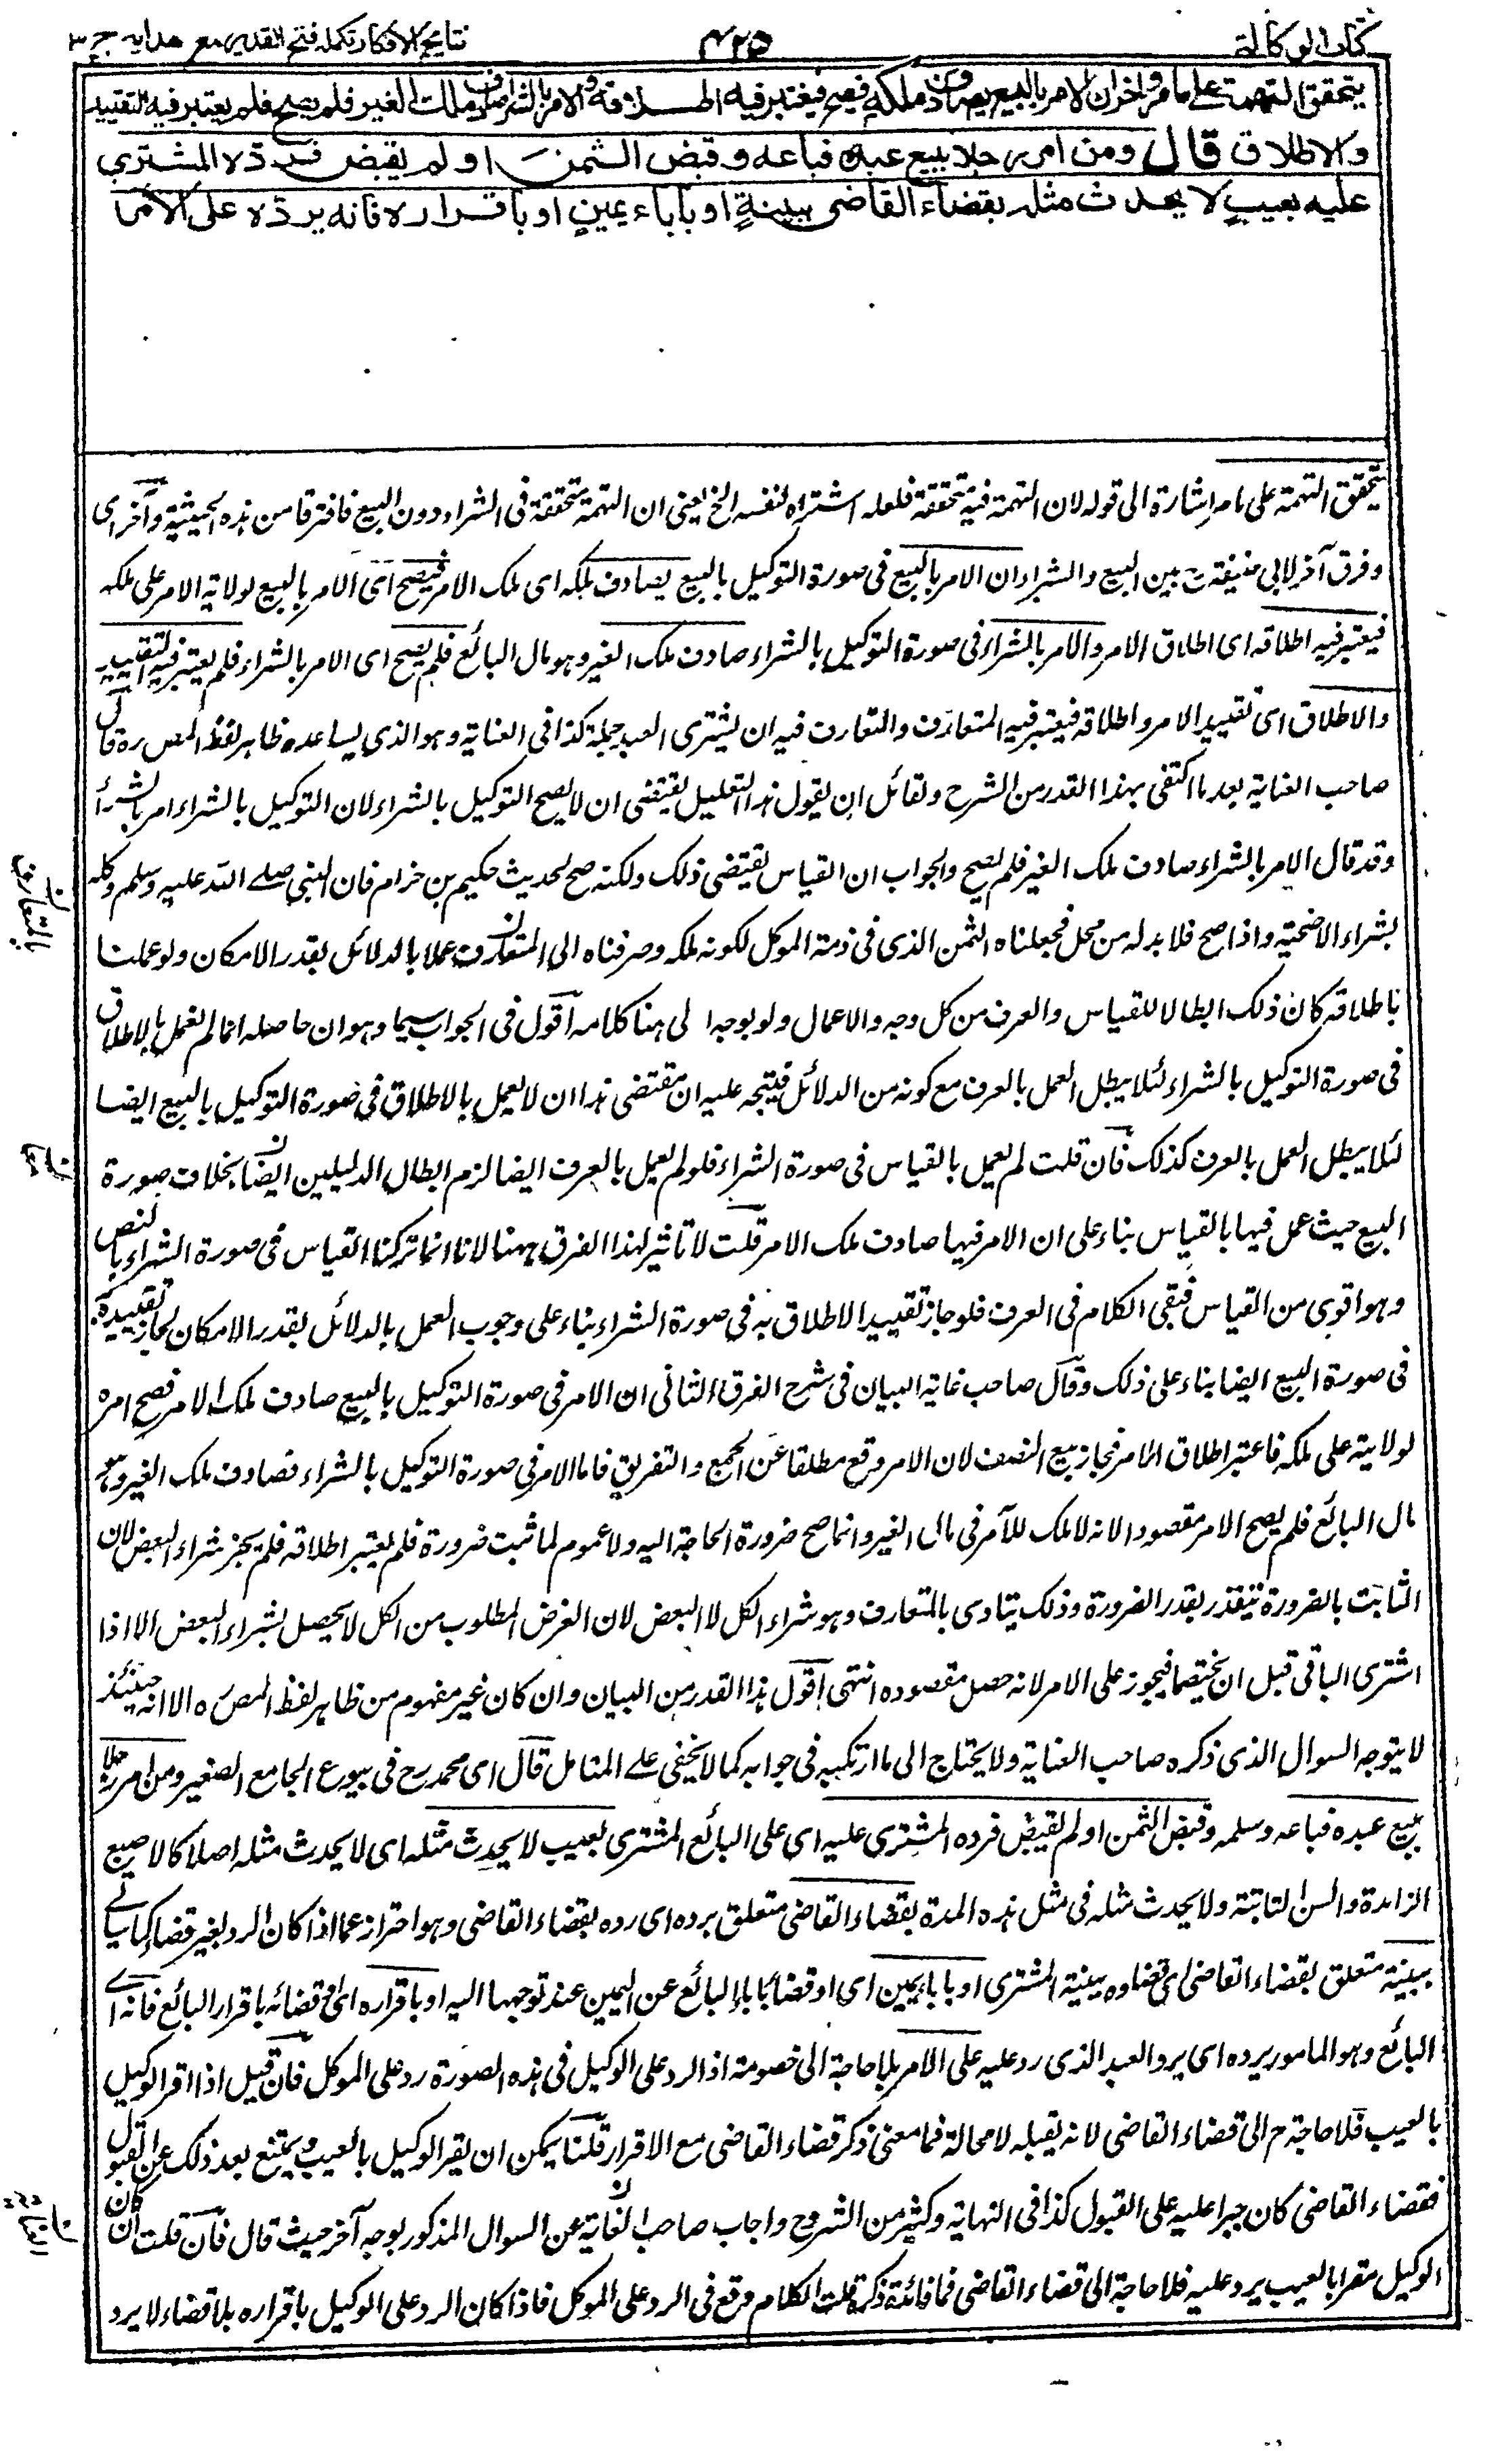 كتاب الوكالة
٤٢٥
نتايج الافكار تكمله فتح القدير مع هدايه ج ٣
يتحقق التهمة على ما مر واخر ان الامر بالبيع يصادف ملكه فيصح فيعتبر فيه اطلاقه والامر بالشراء صادف ملك الغير فلم يصح فلم يعتبر فيه التقييد
والاطلاق قال ومن امر رجلا ببيع عبده فباعه وقبض الثمن او لم يقبض فرده المشتري
عليه بعيب لا يحدث مثله بقضاء القاضى ببينة او باباء يمين او باقراره فانه يرده على الامر
يتحقق التهمة على ما مر اشارة الى قوله لان التهمة فيه تحققة فلعله اشتراه لنفسه الخ يعنى ان التهمة متحققة فى الشراء دون البيع فافترقا من هذه الحيثية وآخر اى
وفرق آخر لابى حنيفة بين البيع والشراء ان الامر بالبيع فى صورة التوكيل بالبيع يصادف ملكه اى ملك الامر فيصح اى الامر بالبيع لولاية الامر على ملكه
فيعتبر فيه اطلاقه اى اطلاق الامر والامر بالشراء فى صورة التوكيل بالشراء صادف ملك الغير وهو مال البائع فلم يصح اى الامر بالشراء فلم يعتبر فيه التقييد
والاطلاق اى تقييد الامر واطلاقه فيعتبر فيه المتعارف والتعارف فيه ان يشترى العبد جملة كذا فى العناية وهو الذى يساعده ظاهر لفظ المص ره قال
صاحب العناية بعد ما اكتفى بهذا القدر من الشرح ولقائل ان يقول هذا التعليل يقتضى ان لا يصح التوكيل بالشراء لان التوكيل بالشراء امر بالشراء
وقد قال الامر بالشراء صادف ملك الغير فلم يصح والجواب ان القياس يقتضى ذلك ولكنه صح لحديث حكيم بن حزام فان النبى صلے الله عليه وسلم وكله
بشراء الاضحية واذا صح فلا بد له من محل فجعلناه الثمن الذى فى ذمة الموكل لكونه ملكه وصرفناه الى المتعارف عملا بالدلائل بقدر الامكان ولو عملنا
باطلاقه كان ذلك ابطالا للقياس والعرف من كل وجه والاعمال ولو بوجه الى هنا كلامه اقول فى الجواب وهو ان حاصله انما لم نعمل بالاطلاق
فى صورة التوكيل بالشراء لئلا يبطل العمل بالعرف مع كونه من الدلائل فيتجه عليه ان مقتضى هذا ان لا يعمل بالاطلاق فى صورة التوكيل بالبيع ايضا
لئلا يبطل العمل بالعرف كذلك فان قلت لم يعمل بالقياس فى صورة الشراء فلو لم يعمل بالعرف ايضا لزم ابطال الدليلين ايضا بخلاف صورة
البيع حيث عمل فيها بالقياس بناء على ان الامر فيها صادف ملك الامر قلت لا تاثير لهذا الفرق ههنا لانا انما تركنا القياس فى صورة الشراء بالنص
وهو اقوى من القياس فبقى الكلام فى العرف فلو جاز تقييد الاطلاق به فى صورة الشراء بناء على وجوب العمل بالدلائل بقدر الامكان لجاز تقييده
فى صورة البيع ايضا بناء على ذلك وقال صاحب غاية البيان فى شرح الفرق الثانى ان الامر فى صورة التوكيل بالبيع صادف ملك الامر فصح امره
لولايته على ملكه فاعتبر اطلاق الامر فجاز بيع النصف لان الامر وقع مطلقا عن الجمع والتفريق فاما الامر فى صورة التوكيل بالشراء فصادف ملك الغير وهو
مال البائع فلم يصح الامر مقصودا لانه لا ملك للآمر فى مال الغير وانما صح ضرورة الحاجة اليه ولا عموم لما ثبت ضرورة فلم يعتبر اطلاقه فلم يجز شراء البعض لان
الثابت بالضرورة يتقدر بقدر الضرورة وذلك يتادى بالمتعارف وهو شراء الكل لا البعض لان الغرض المطلوب من الكل لا يحصل بشراء البعض الا اذا
اشترى الباقى قبل ان يختصما فيجوز على الامر لانه حصل مقصوده انتهى اقول هذا القدر من البيان وان كان غير مفهوم من ظاهر لفظ المص ره الا انه حينئذ
لا يتوجه السوال الذى ذكره صاحب العناية ولا يحتاج الى ما ارتكبه فى جوابه كما لا يخفى على المتامل قال اى محمد رح فى بيوع الجامع الصغير ومن امر رجلا
ببيع عبده فباعه وسلمه وقبض الثمن او لم يقبض فرده المشترى عليه اى على البائع المشترى بعيب لا يحدث مثله اى لا يحدث مثله اصلا كالاصبع
الزائدة والسن الثابتة ولا يحدث مثله فى مثل هذه المدة بقضاء القاضى متعلق برده اى رده بقضاء القاضى وهو احتراز عما اذا كان الرد بغير قضاء كما سياتے
ببينة متعلق بقضاء القاضى اى قضاؤه ببينة المشترى او باباء يمين اى او قضائه باباء البائع عن اليمين عند توجهها اليه او باقراره اى قضائه باقرار البائع فانه اے
البائع وهو المامور يرده اى يرد العبد الذى رد عليه على الامر بلا حاجة الى خصومة اذ الرد على الوكيل فى هذه الصورة رد على الموكل فان قيل اذا اقر الوكيل
بالعيب فلا حاجة ح الى قضاء القاضى لانه يقبله لا محالة فما معنى ذكر قضاء القاضى مع الاقرار قلنا يمكن ان يقر الوكيل بالعيب ويمتنع بعد ذلك عن القبول
فقضاء القاضى كان جبرا عليه على القبول كذا فى النهاية وكثير من الشروح واجاب صاحب الغاية عن السوال المذكور بوجه آخر حيث قال فان قلت ان كان
الوكيل مقرا بالعيب يرد عليه فلا حاجة الى قضاء القاضى فما فائدة ذكره قلت الكلام وقع فى الرد على الموكل فاذا كان الرد على الوكيل باقراره بلا قضاء لا يرد
بالتعارف